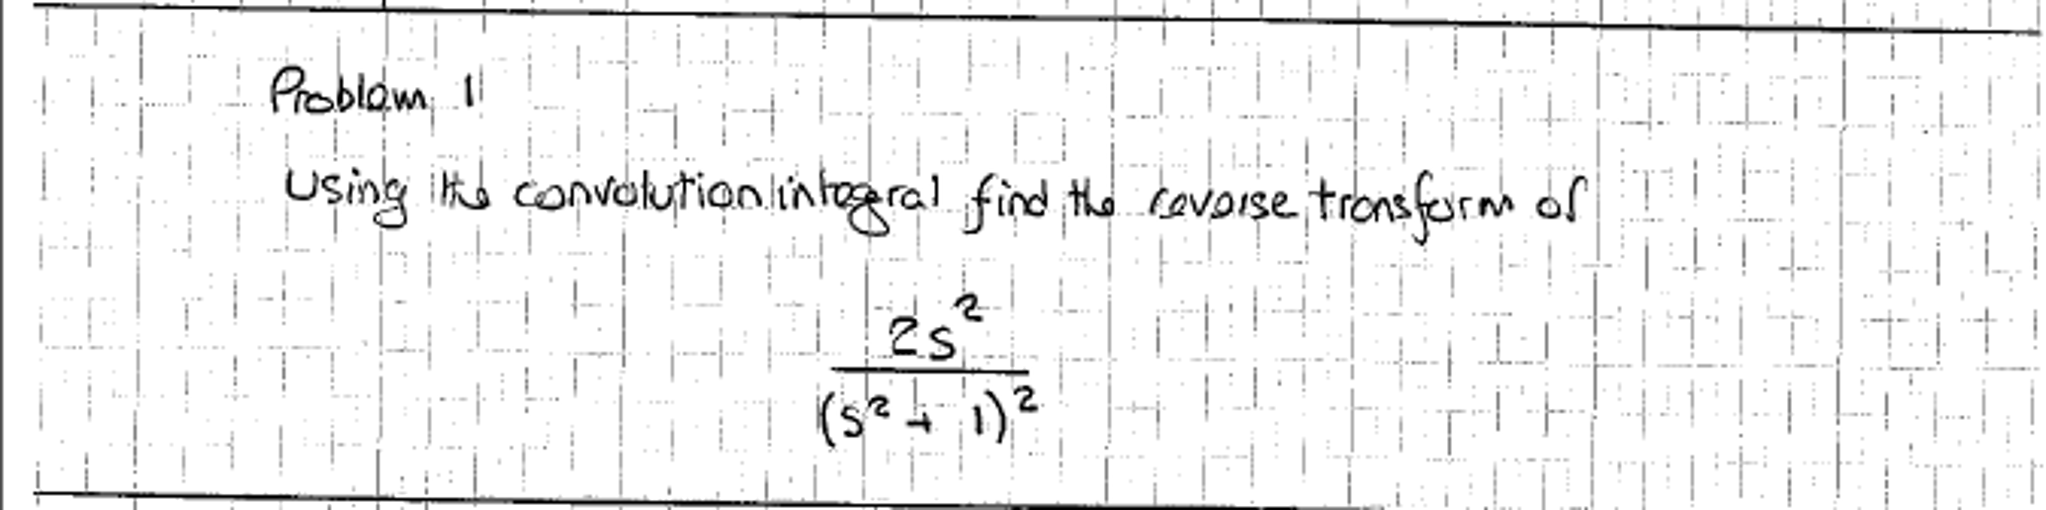 Problem 1
Using the convolution integral find the reverse transform of
2s²
(s² + 1)²